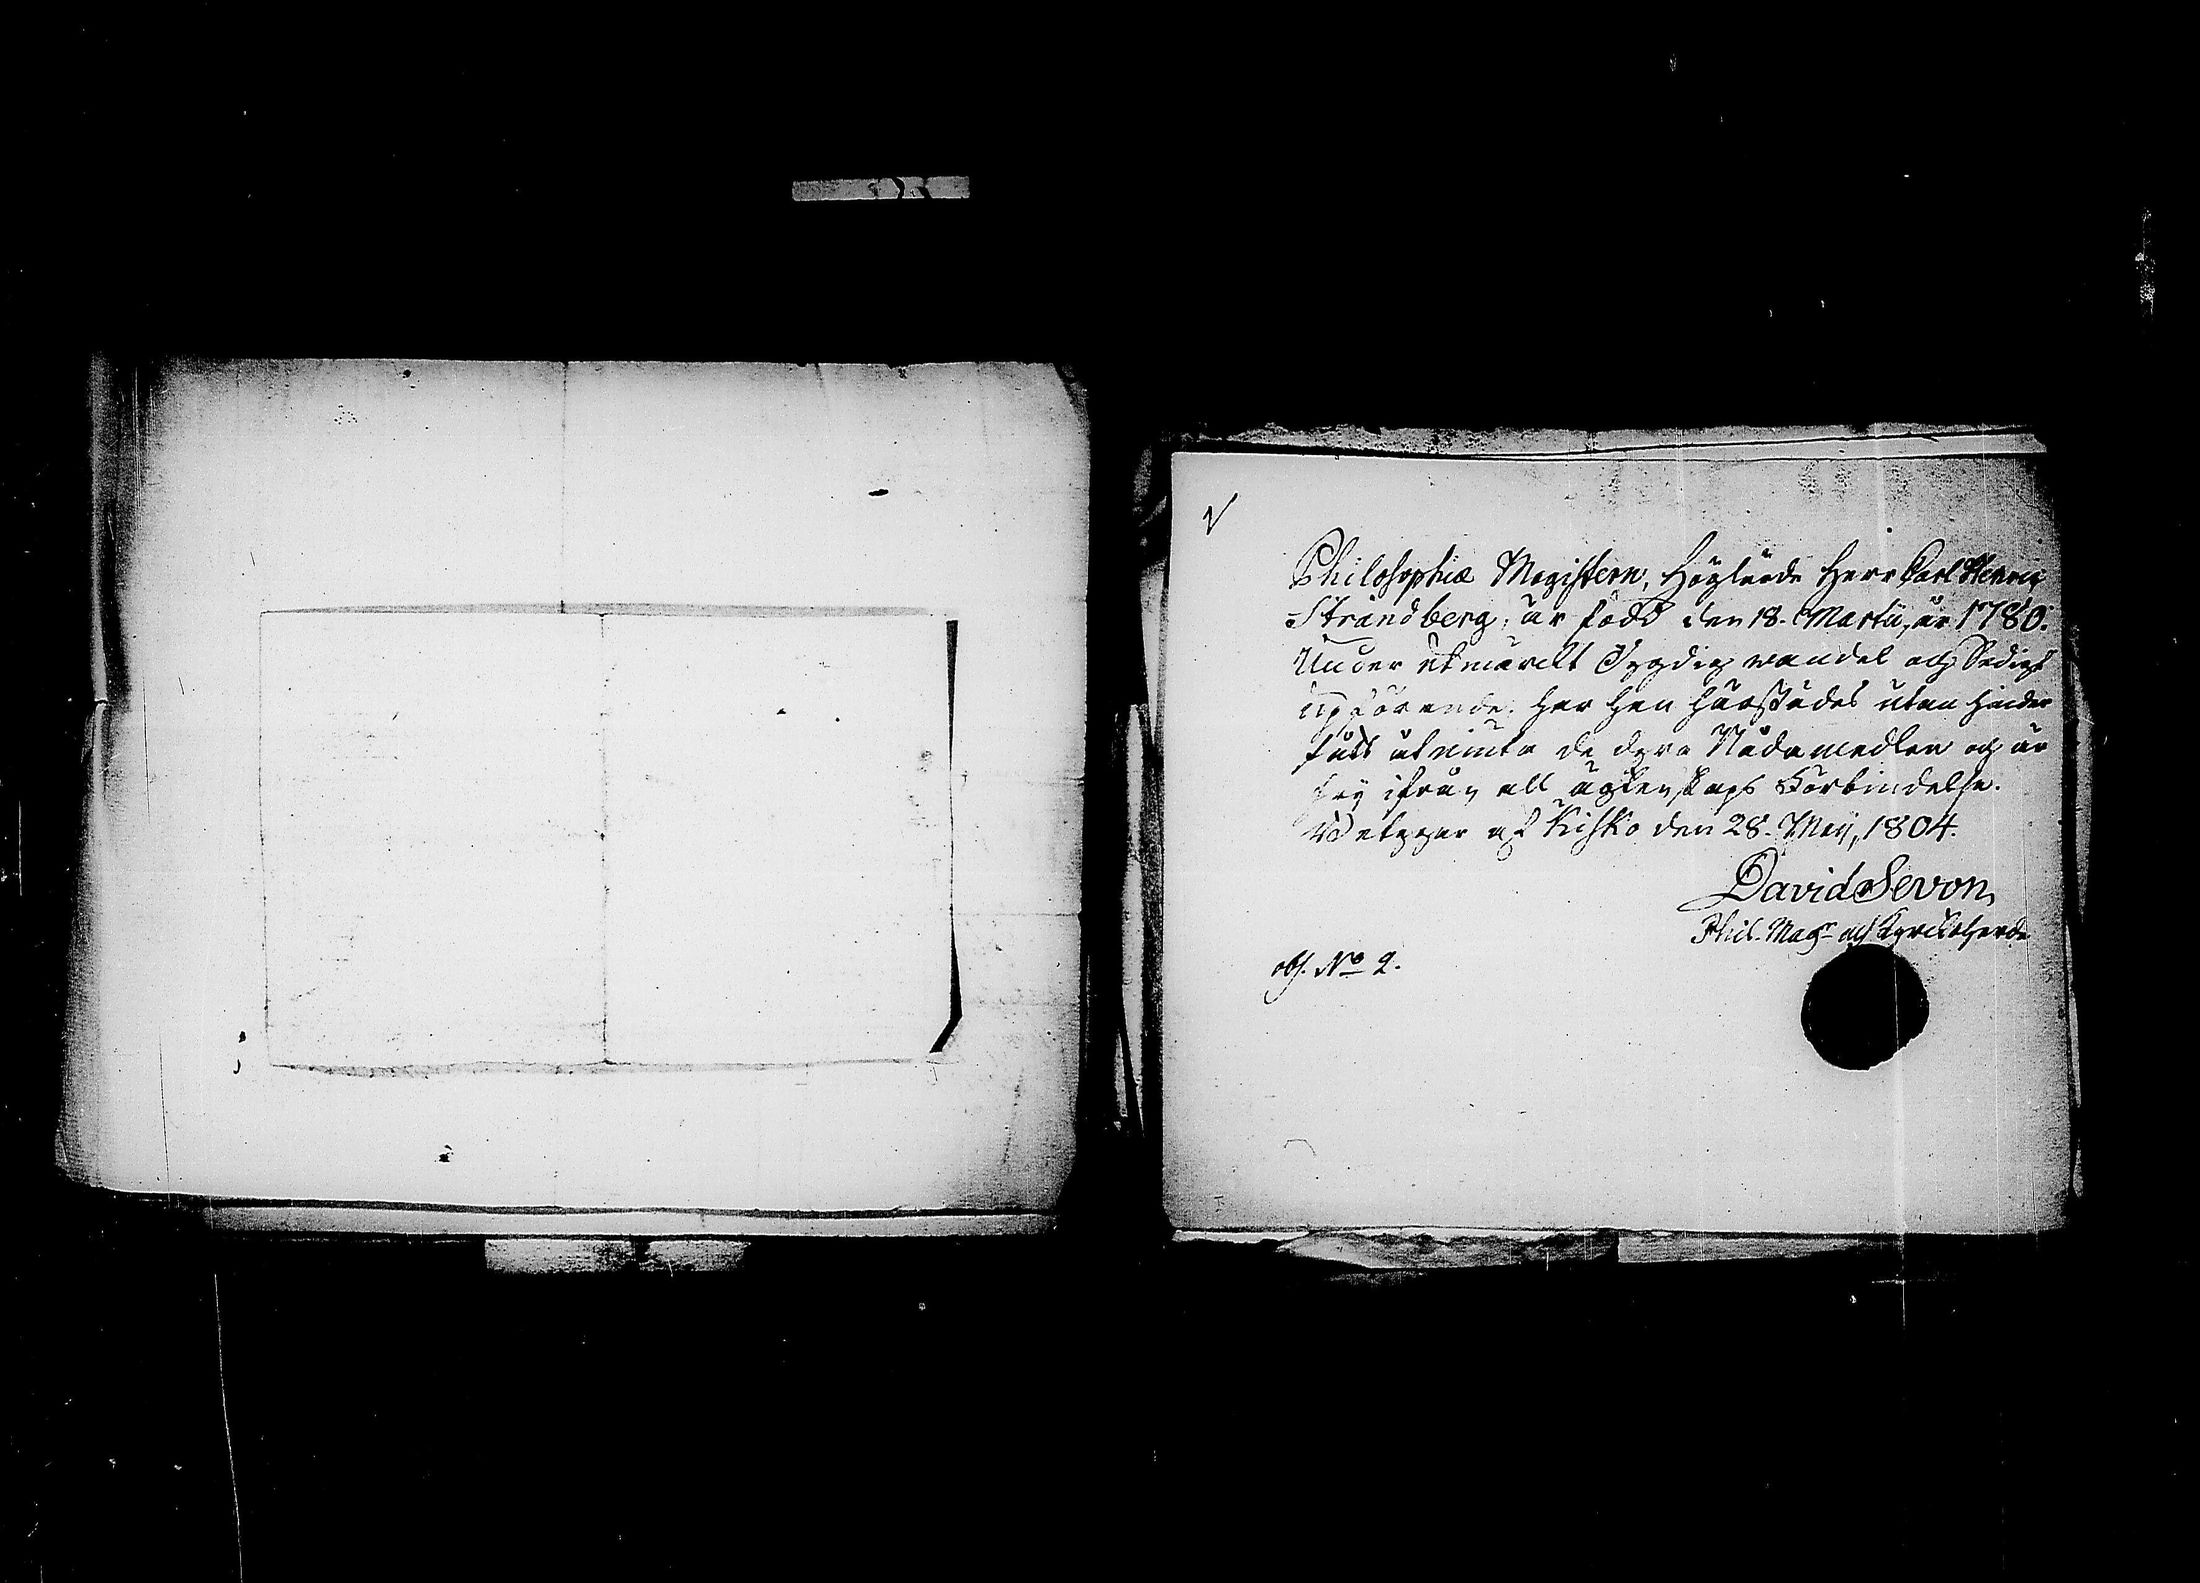 Philosophiæ Magistern, Höglärde Herr Carl Henric
Strandberg, är född den 18. Martii, år 1780.
Under utmärckt Dygdig wandel och Sedigt
upförande, har han härstädes utan hinder
fått åtniuta de dyra Nådamedlen och är
fry ifrån all ägtenskaps Förbindelse.
Betygar af Kisko den 28. Maij, 1804.
David Sevon,
Phil. Magr och Kyrckoherde
obs. No 2.